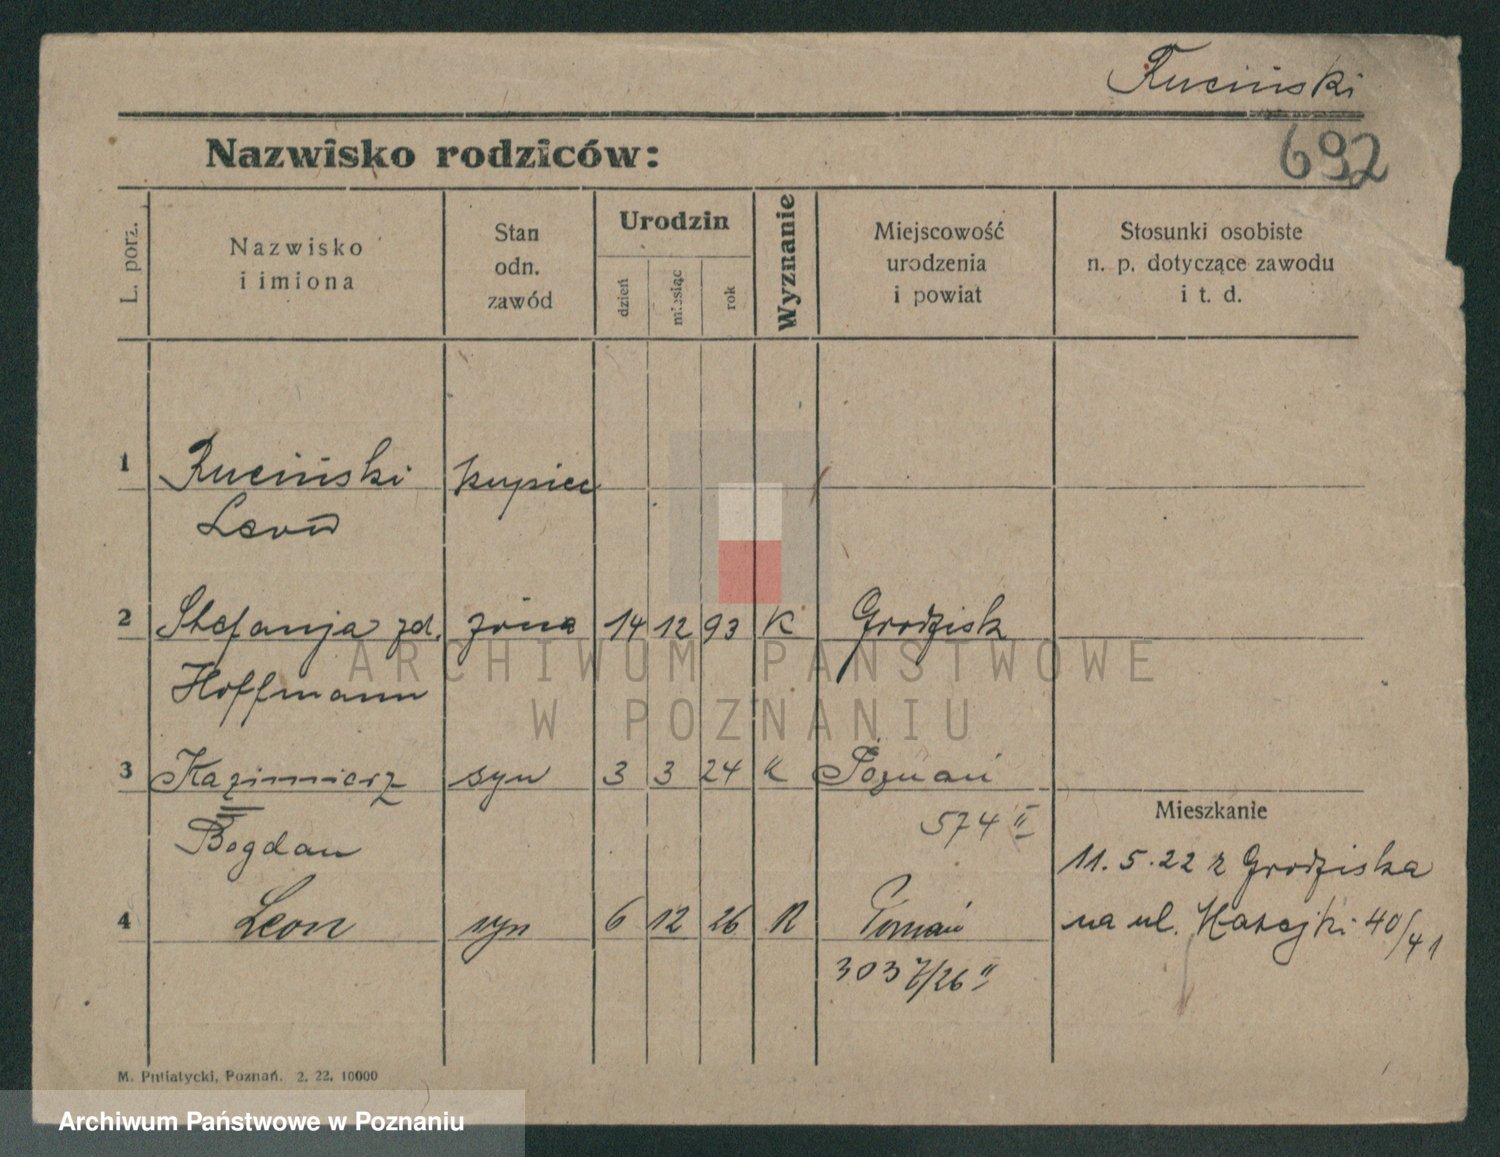 Ruciński
692
Nazwisko rodziców:
L. porz.
Nazwisko
i imiona
Stan
odn.
zawód
Urodzin
dzień
miesiąc
rok
Wyznanie
Miejscowość
urodzenia
i powiat
Stosunki osobiste
n. p. dotyczące zawodu
i t. d.
1 Ruciński kupiec
Leon
2 Stefanja zd. żona 14 12 93 K Grodzisk
Hoffmann
ARCHIWUM PAŃSTWOWE
W POZNANIU
3 Kazimierz syn 3 3 24 K Poznań
574 II
Mieszkanie
Bogdan
11.5.22 z Grodziska
4 Leon syn 6 12 26 K Poznań
na ul. 40/41
3037/26 II
M. Putiatycki, Poznań. 2. 22. 10000
Archiwum Państwowe w Poznaniu